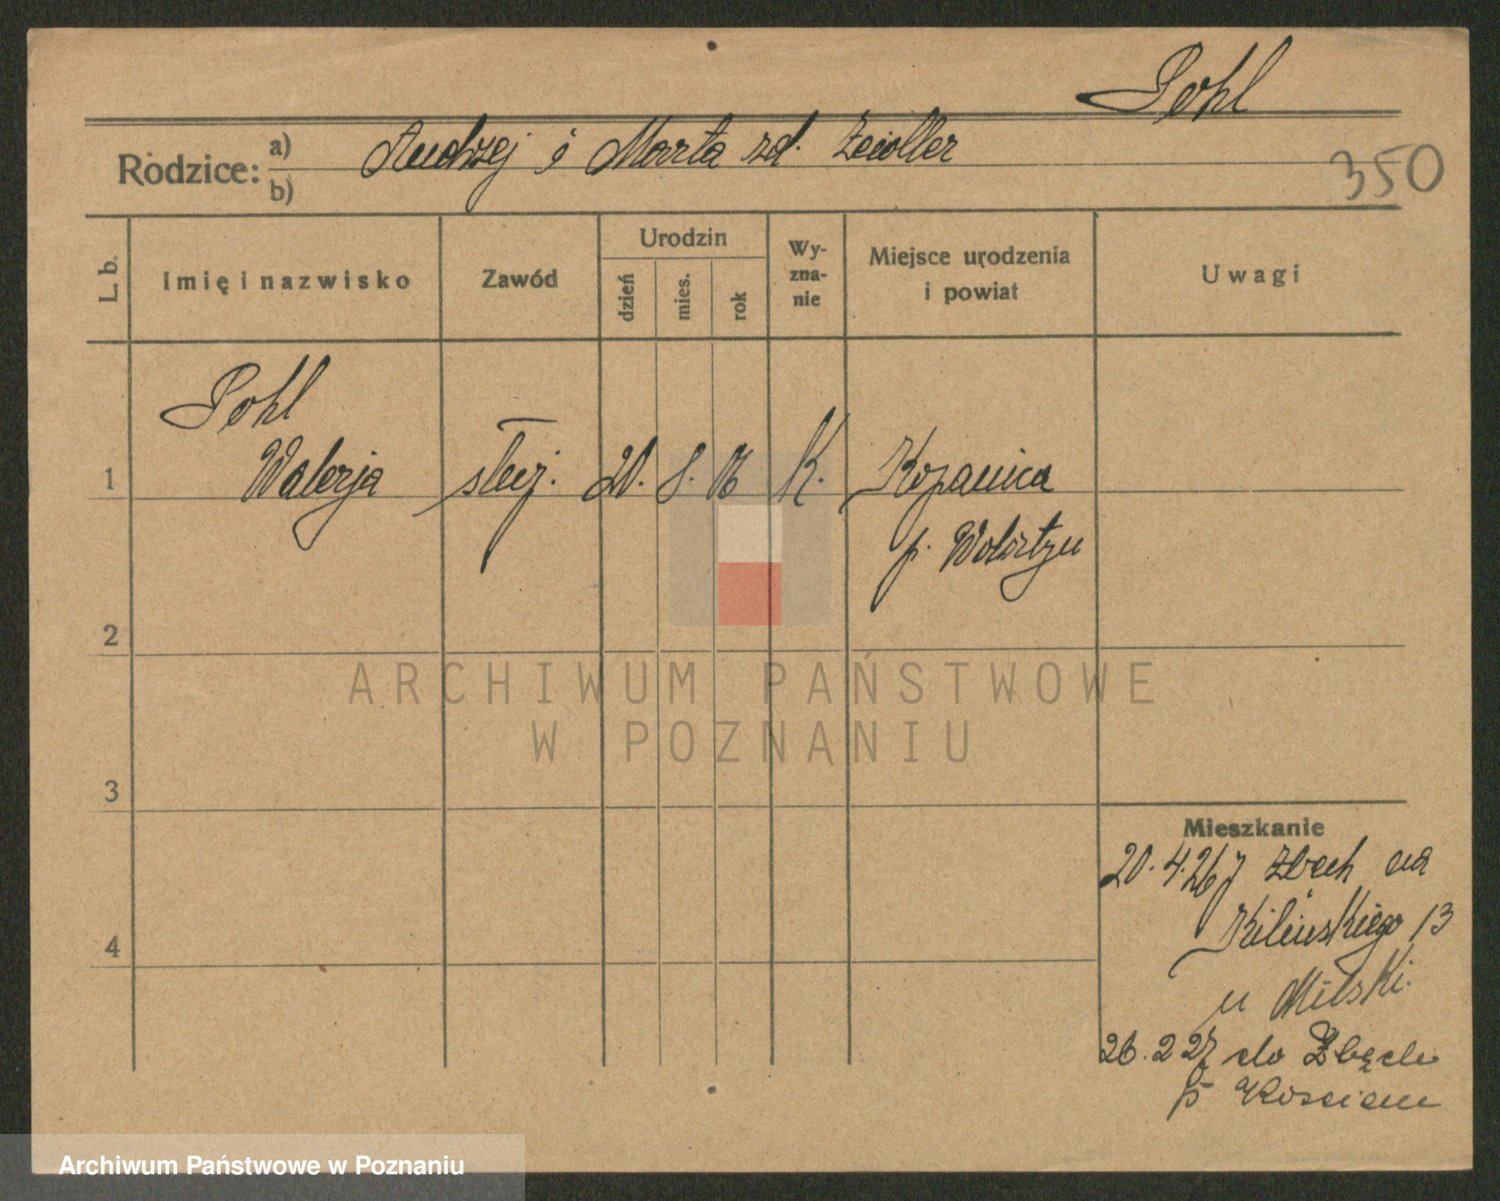 Pohl
Rodzice: a) b)
Andrzej i Marta zd. Zeidler
350
L. b.
Imię i nazwisko
Zawód
Urodzin
dzień
mies.
rok
Wy-
zna-
nie
Miejsce urodzenia
i powiat
Uwagi
Pohl
1 Walerja służ. 20. 8. 06 K. Kopanica
p. Wolsztyn
2
ARCHIWUM PAŃSTWOWE
W POZNANIU
3
Mieszkanie
20.4.26 z Zbech na
Kilińskiego 13
4
u Milski.
26.2 27 do Zbęch
p Kościan
Archiwum Państwowe w Poznaniu